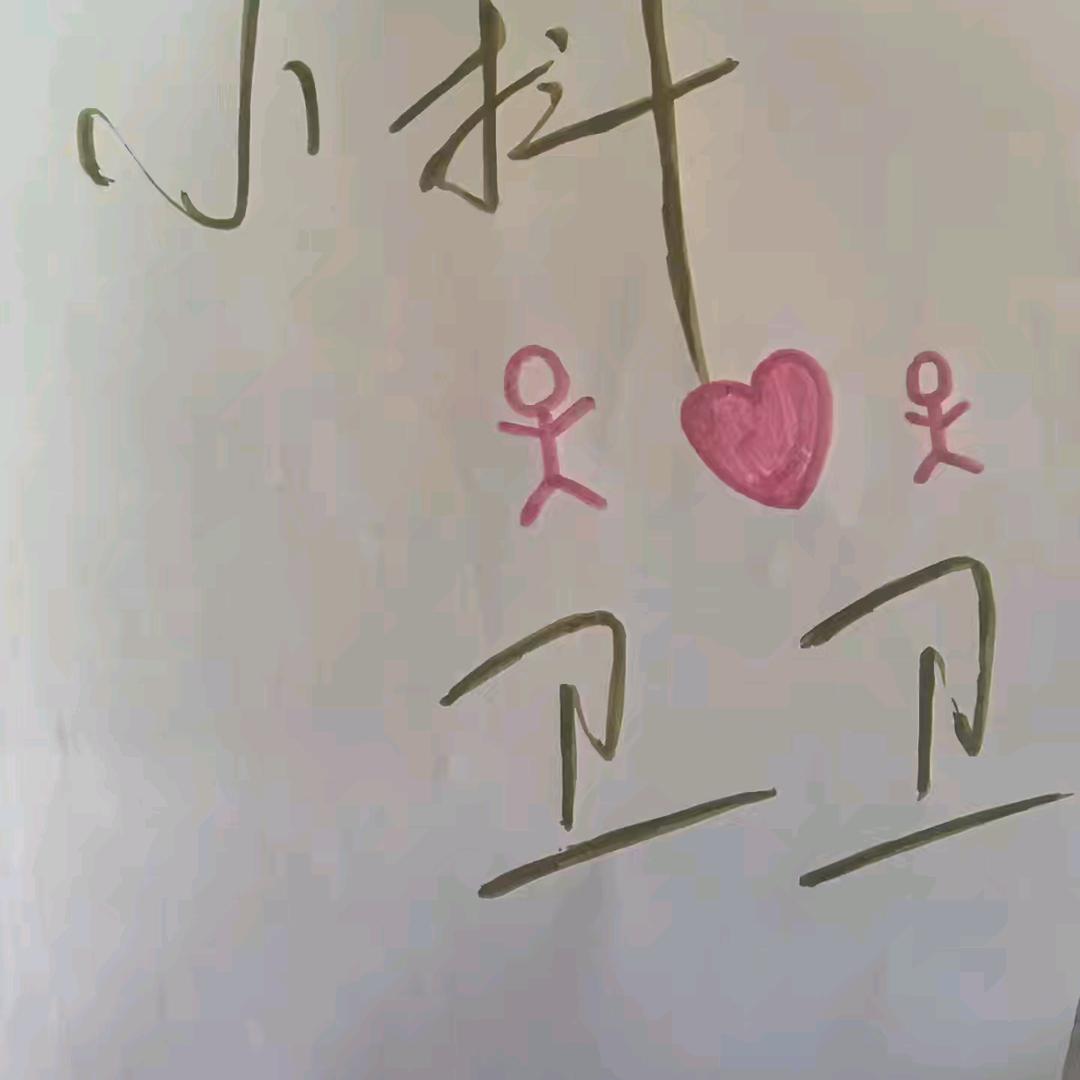 小抖
卫卫